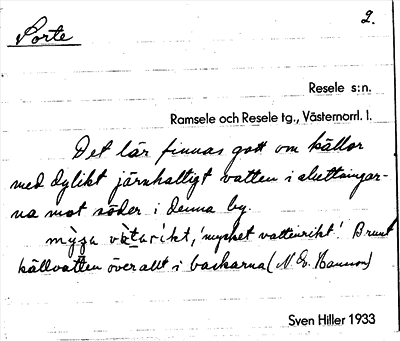 Sorte
2.
Resele s:n.
Ramsele och Resele tg., Västernorrl. l.
Det lär finnas gott om källor
med dylikt järnhaltigt vatten i sluttningar-
na mot söder i denna by.
mỳʒa vàtaríkt, 'mycket vattenrikt'. Brunt
källvatten överallt i backarna (N. Ev. Hansson)
Sven Hiller 1933